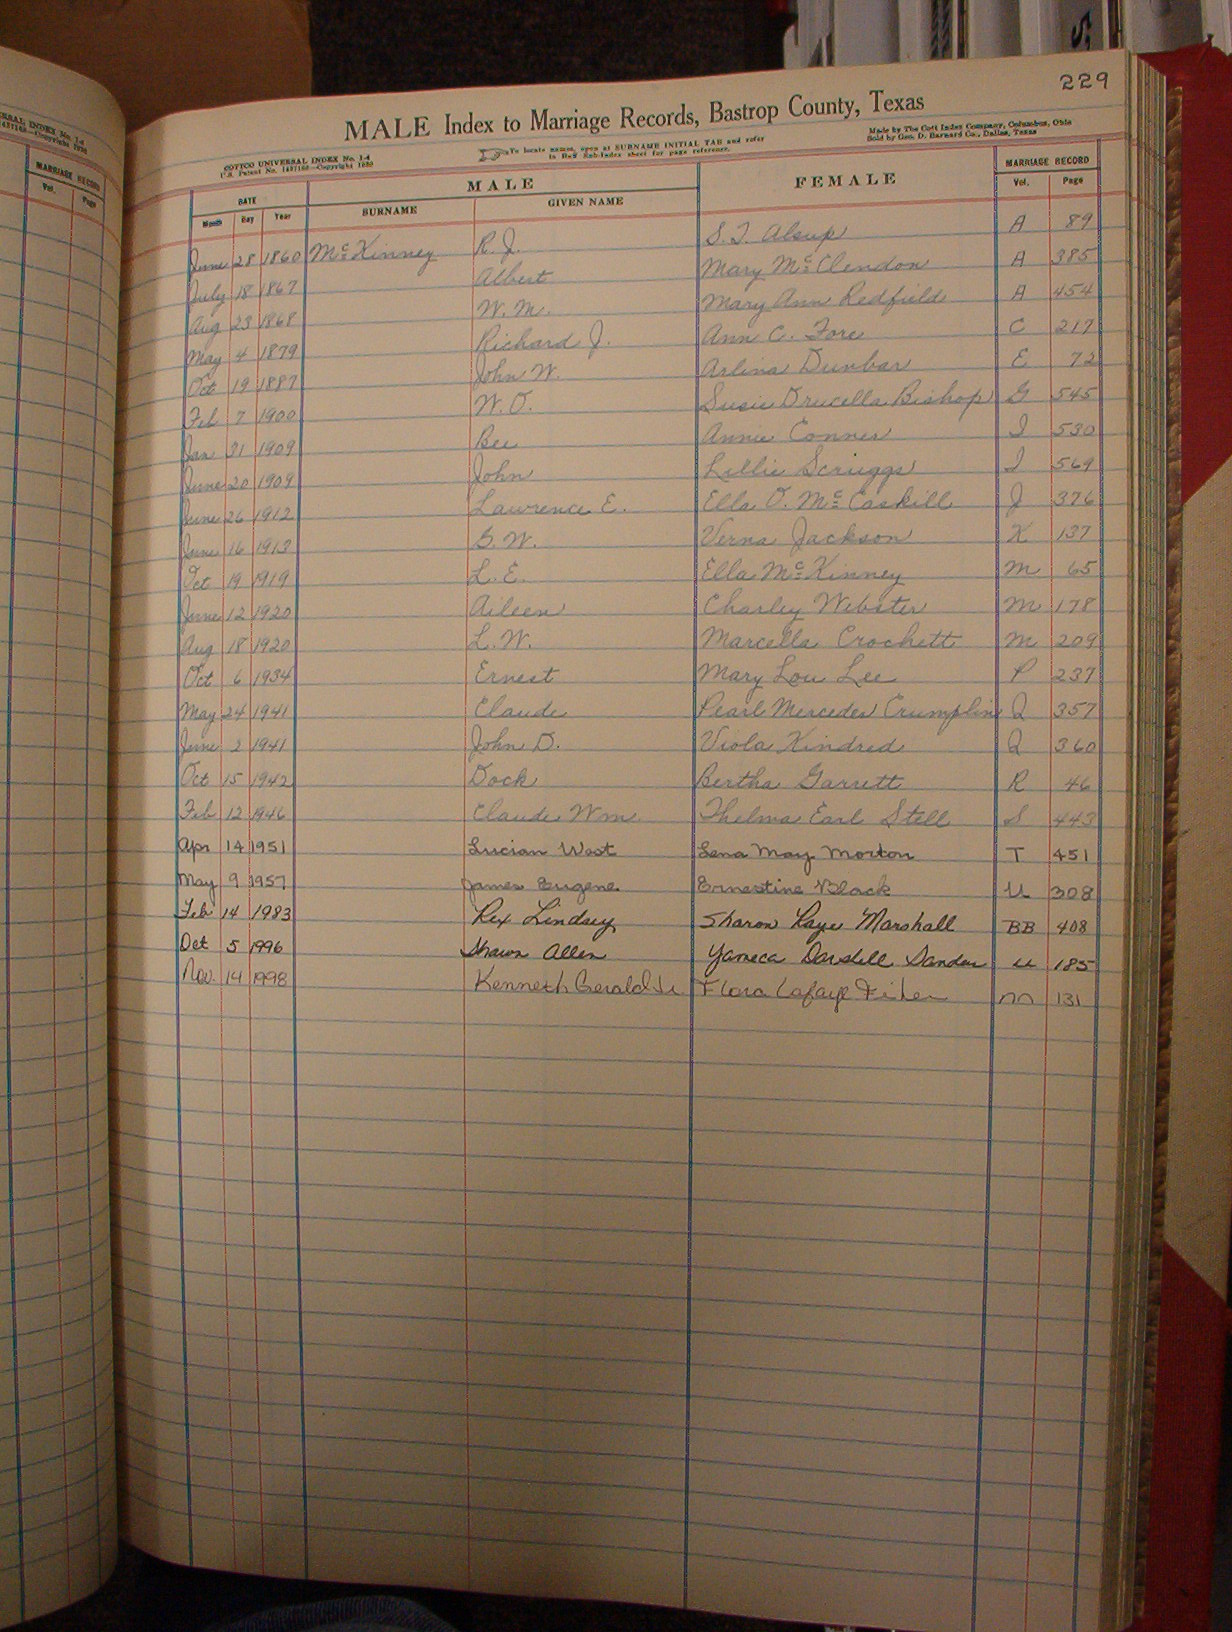 229
MALE Index to Marriage Records, Bastrop County, Texas
COTTCO UNIVERSAL INDEX No. 1-4
To locate names, open at SURNAME INITIAL TAB and refer
to Sub-Index sheet for page reference.
Made by The Cott Index Company, Columbus, Ohio
Sold by Geo. D. Barnard Co., Dallas, Texas
DATE MALE FEMALE MARRIAGE RECORD
Month Day Year SURNAME GIVEN NAME Vol. Page
June 28 1860 McKinney R. J. S. T. Alsup A 89
July 18 1867 Albert Mary McClendon A 385
Aug 23 1868 W. M. Mary Ann Redfield A 454
May 4 1879 Richard J. Ann C. Fore C 217
Oct 19 1887 John W. Arlina Dunbar E 72
Feb 7 1900 W. O. Susie Drucella Bishop G 545
Jan 31 1909 Bee Annie Conner I 530
June 20 1909 John Lillie Scruggs I 569
June 26 1912 Lawrence E. Ella O. McCaskill J 376
June 16 1913 G. W. Verna Jackson K 137
Oct 19 1919 L. E. Ella McKinney M 65
June 12 1920 Aileen Charley Webster M 178
Aug 18 1920 L. W. Marcella Crochett M 209
Oct 6 1934 Ernest Mary Lou Lee P 237
May 24 1941 Claude Pearl Mercedes Crumplin Q 357
June 2 1941 John D. Viola Kindred Q 360
Oct 15 1942 Dock Bertha Garrett R 46
Feb 12 1946 Claude Wm Thelma Earl Stell S 443
Apr 14 1951 Lucian West Lena May Morton T 451
May 9 1957 James Eugene Ernestine Black U 308
Feb 14 1983 Rex Lindsey Sharon Raye Marshall BB 408
Oct 5 1996 Shawn Allen Yameca 185
Nov. 14 1998 Kenneth Gerald Jr Flora Lafaye 131
MARRIAGE RECORD
Vol. Page